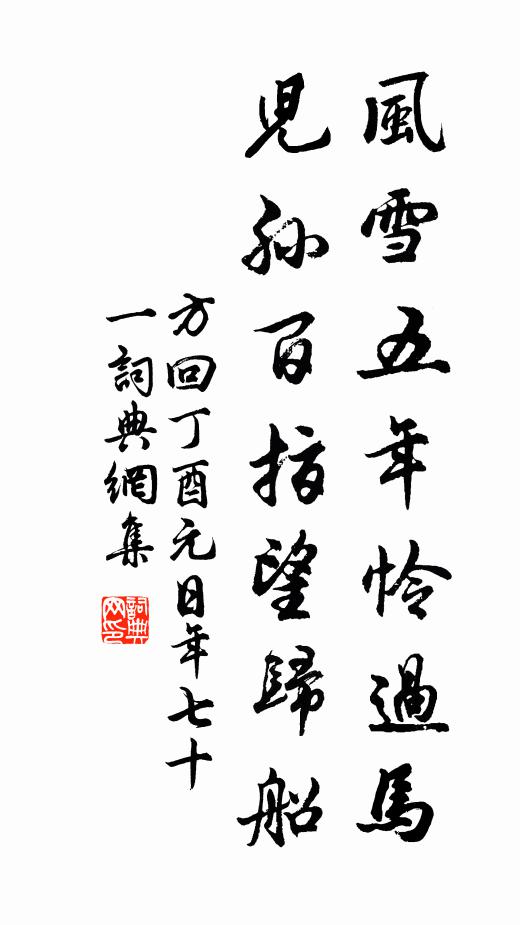 風雪五年怜過馬
兒孫百指望歸船
方回丁酉元日年七十
一詞典網集
詞典
网印